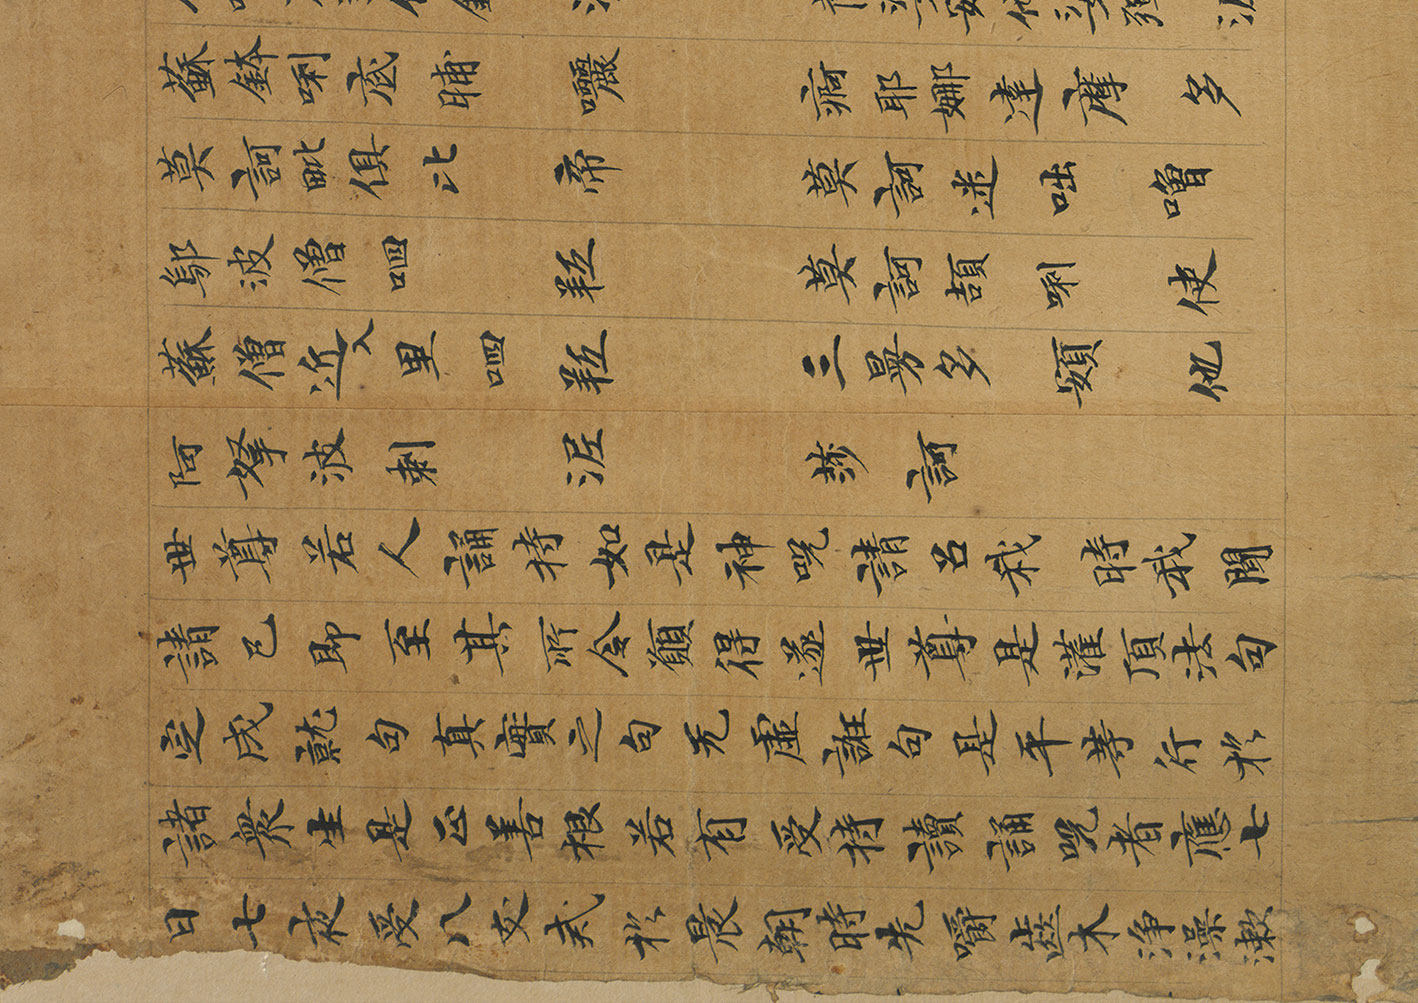 蘇鉢唎底晡 囇 痾耶娜達摩多
莫訶毗俱比帝 莫訶迷咄嚕
鄔波僧呬羝 莫訶頡唎使
蘇僧近入里呬羝 三曼多頞他
阿拏波剌泥 莎訶
世尊若人誦持如是神呪請召我時我聞
請已即至其所令願得遂世尊是灌頂法句
定成就句真實之句无虛誑句是平等行於
諸衆生是正善根若有受持讀誦呪者應七
日七夜受八支戒於晨朝時先嚼齒木淨澡漱